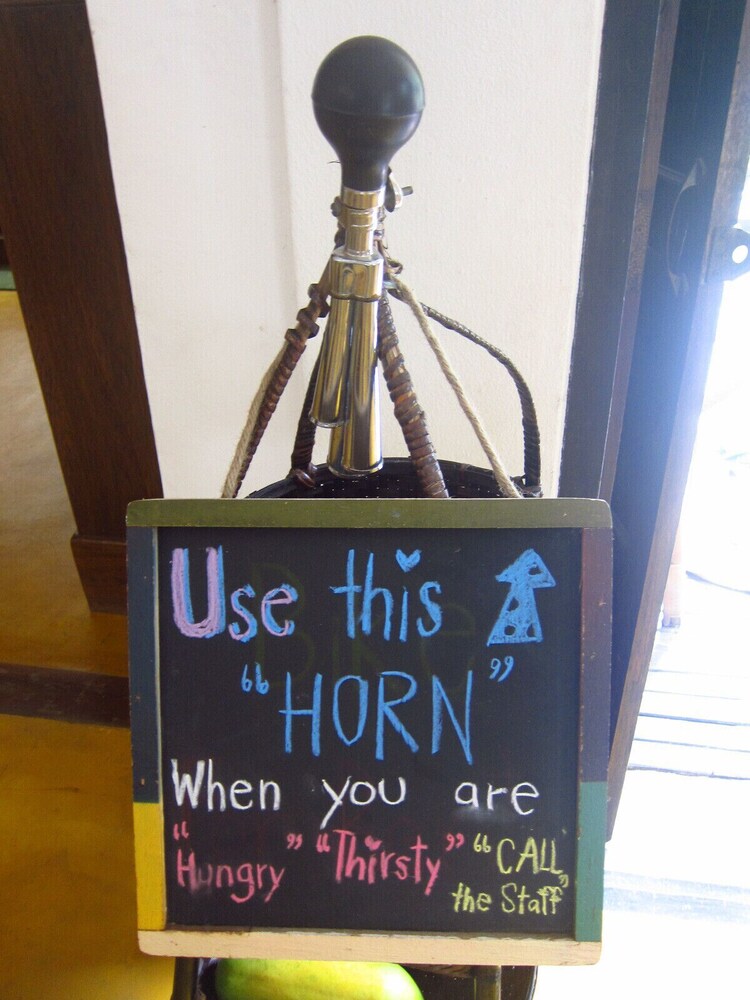 Use this
“HORN”
When you are
“Hungry” “Thirsty” “CALL
the Staff”